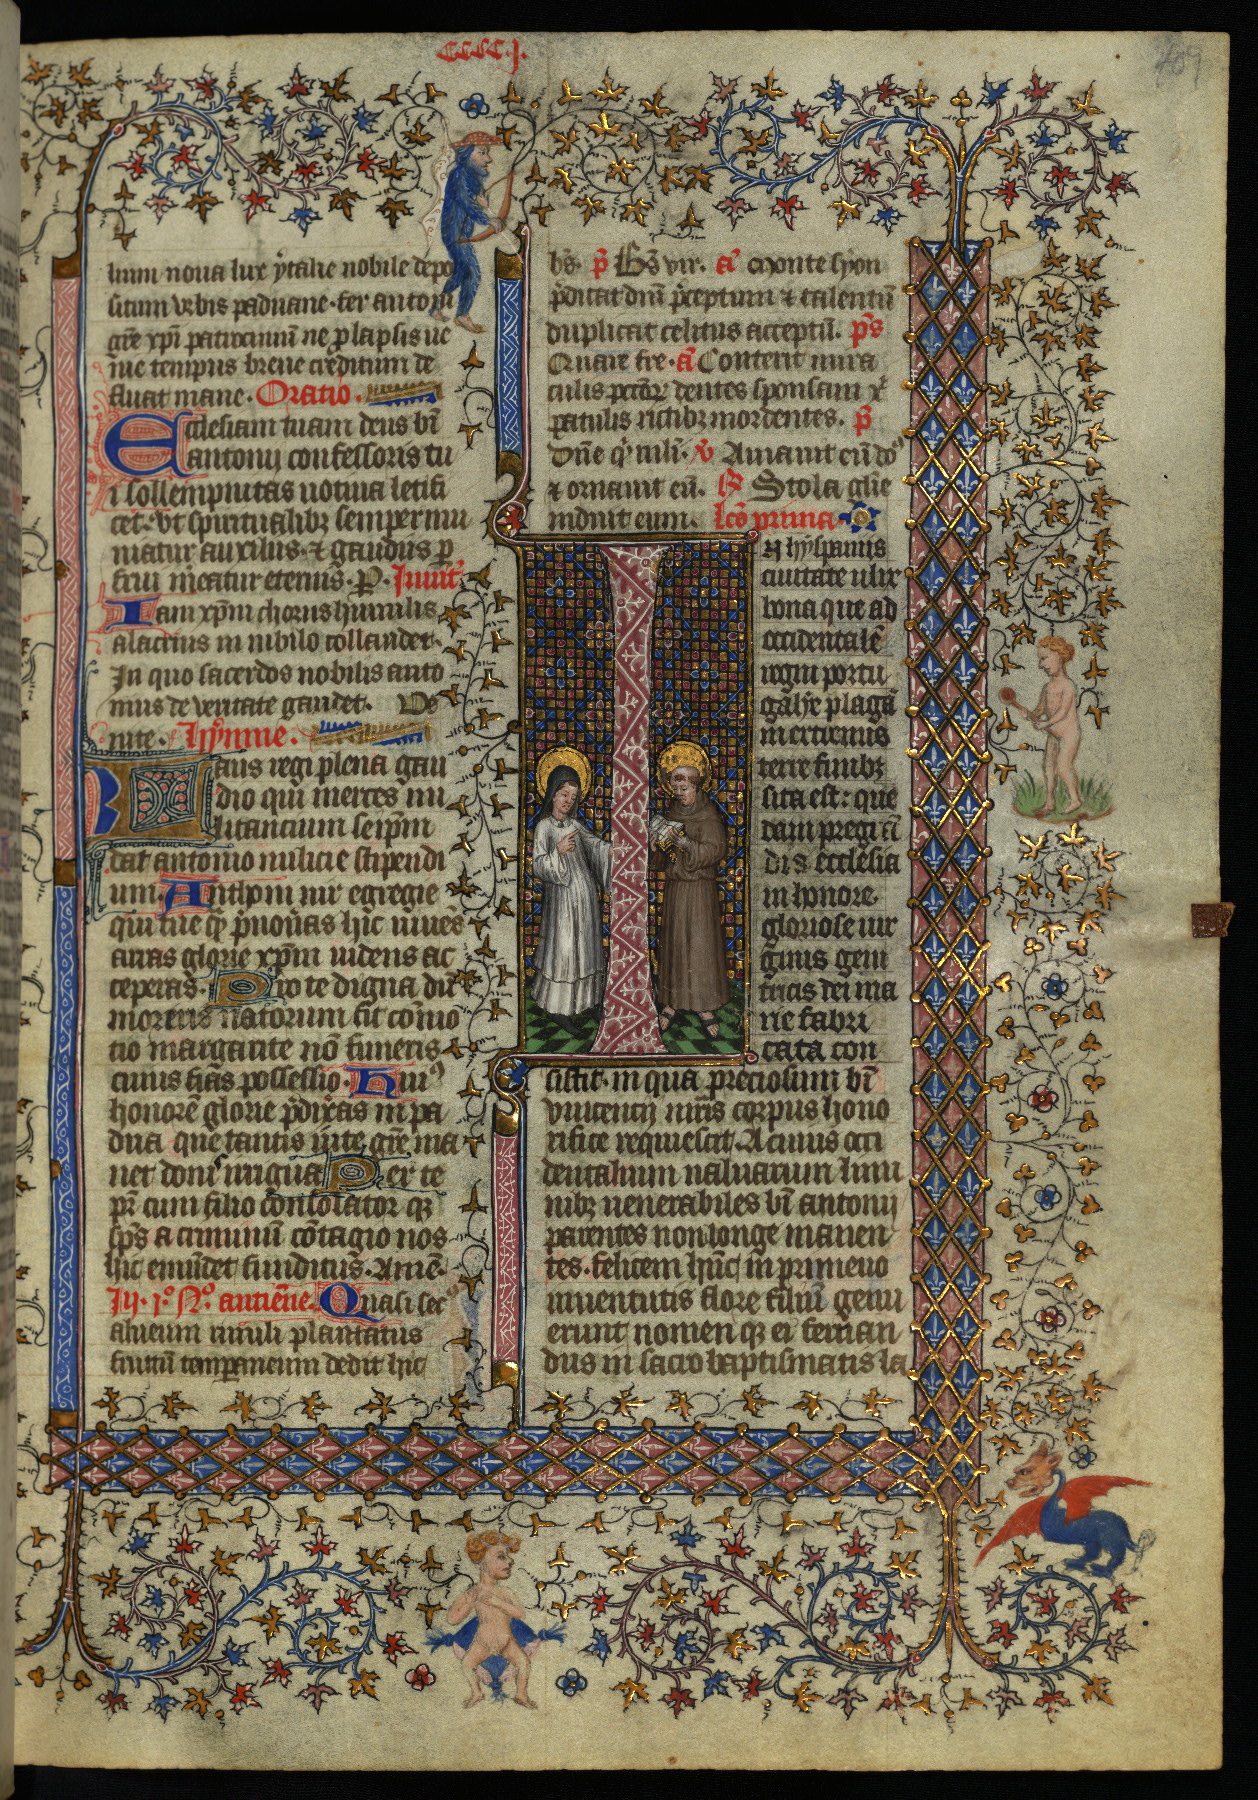 CCCC.j.
409
lium noua lux ytalie nobile depo
situm vrbis paduane. fer antoni
gr̄e xp̄i patrocinīu ne plapsis ue
nīe tempus breue creditum de
fluat mane. Oratio.
Ecclesiam tuam deus bt̄i
antonij confessoris tu
i sollempnitas uotiua letifi
cet. vt spiritualibꝫ semper mu
niatur auxilijs. et gaudijs p̄
frui mereatur eternis. P. Inuit̄.
Iam xp̄m chorus humilis
alacrius in iubilo collaudet.
In quo sacerdos nobilis anto
nius de ueritate gaudet. Ve
nite. Hymne.
Laus regi plena gau
dio qui merces mi
litancium seip̄m
dat antonio milicie stipendi
um. Antoni uir egregie
auras glorie xp̄m uidens ac
ceperas. Pio te digna dū
moreris natorum fit cōmo
tio margarite nō funeris
cuius hn̄as possessio. Huiꝰ
honorē glorie p̄dix̄as in pa
dua que tantis uite gr̄e ma
net doni irrigua. Per te
pr̄ cum filio consolator qꝫ
sp̄s a criminū cōtagio nos
hic emūdet funditus. Amē.
In. i°. N°. antiēne. Quasi secꝰ
alueum riuuli plantatus
fructū temporaneum dedit hic
bē. p̄ Bs̄ vir. a᷑ Monte syon
p̄dicat dn̄i p̄ceptum et talentū
duplicat celitus acceptū. ps̄
Quare fre. a᷑ Conterit mira
culis pctōꝝ dentes sponsam xp̄i
patulis rictibꝫ mordentes. p̄
Dn̄e qͥ mlī. v̄ Amauit eū dn̄s
et ornauit eū. R̄ Stola gl̄ie
induit eum. lcō prima.
In hyspanijs
ciuitate ulix
bona que ad
occidentalē
regni portu
galye plagā
in extremis
terre finibꝫ
sita est: que
dam pregrā
dis ecclesia
in honore
gloriose uir
ginis geni
tricis dei ma
rie fabri
cata con
sistit. in qua preciosum bt̄i
vincentij mr̄is corpus hono
rifice requiescit. A cuius occi
dentalium ualuarum limi
nibꝫ uenerabiles bt̄i antonij
parentes non longe manen
tes. felicem hūc in primeuo
iuuentutis flore filiū genu
erunt nomen qꝫ ei fernan
dus in sacro baptismatis la